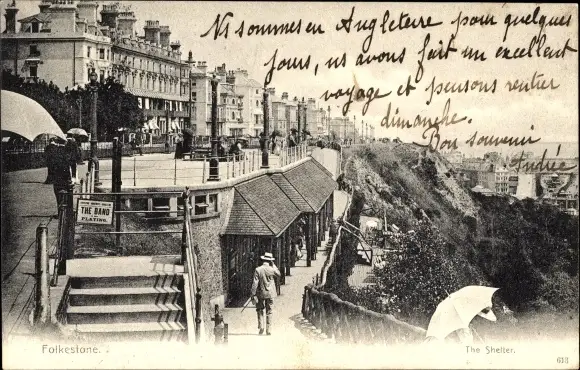 Ns sommes en Angleterre pour quelques
jours, ns avons fait un excellent
voyage et pensons rentrer
dimanche.
Bon souvenir
Andrée
THE BAND
PLAYING
Folkestone.
The Shelter.
613